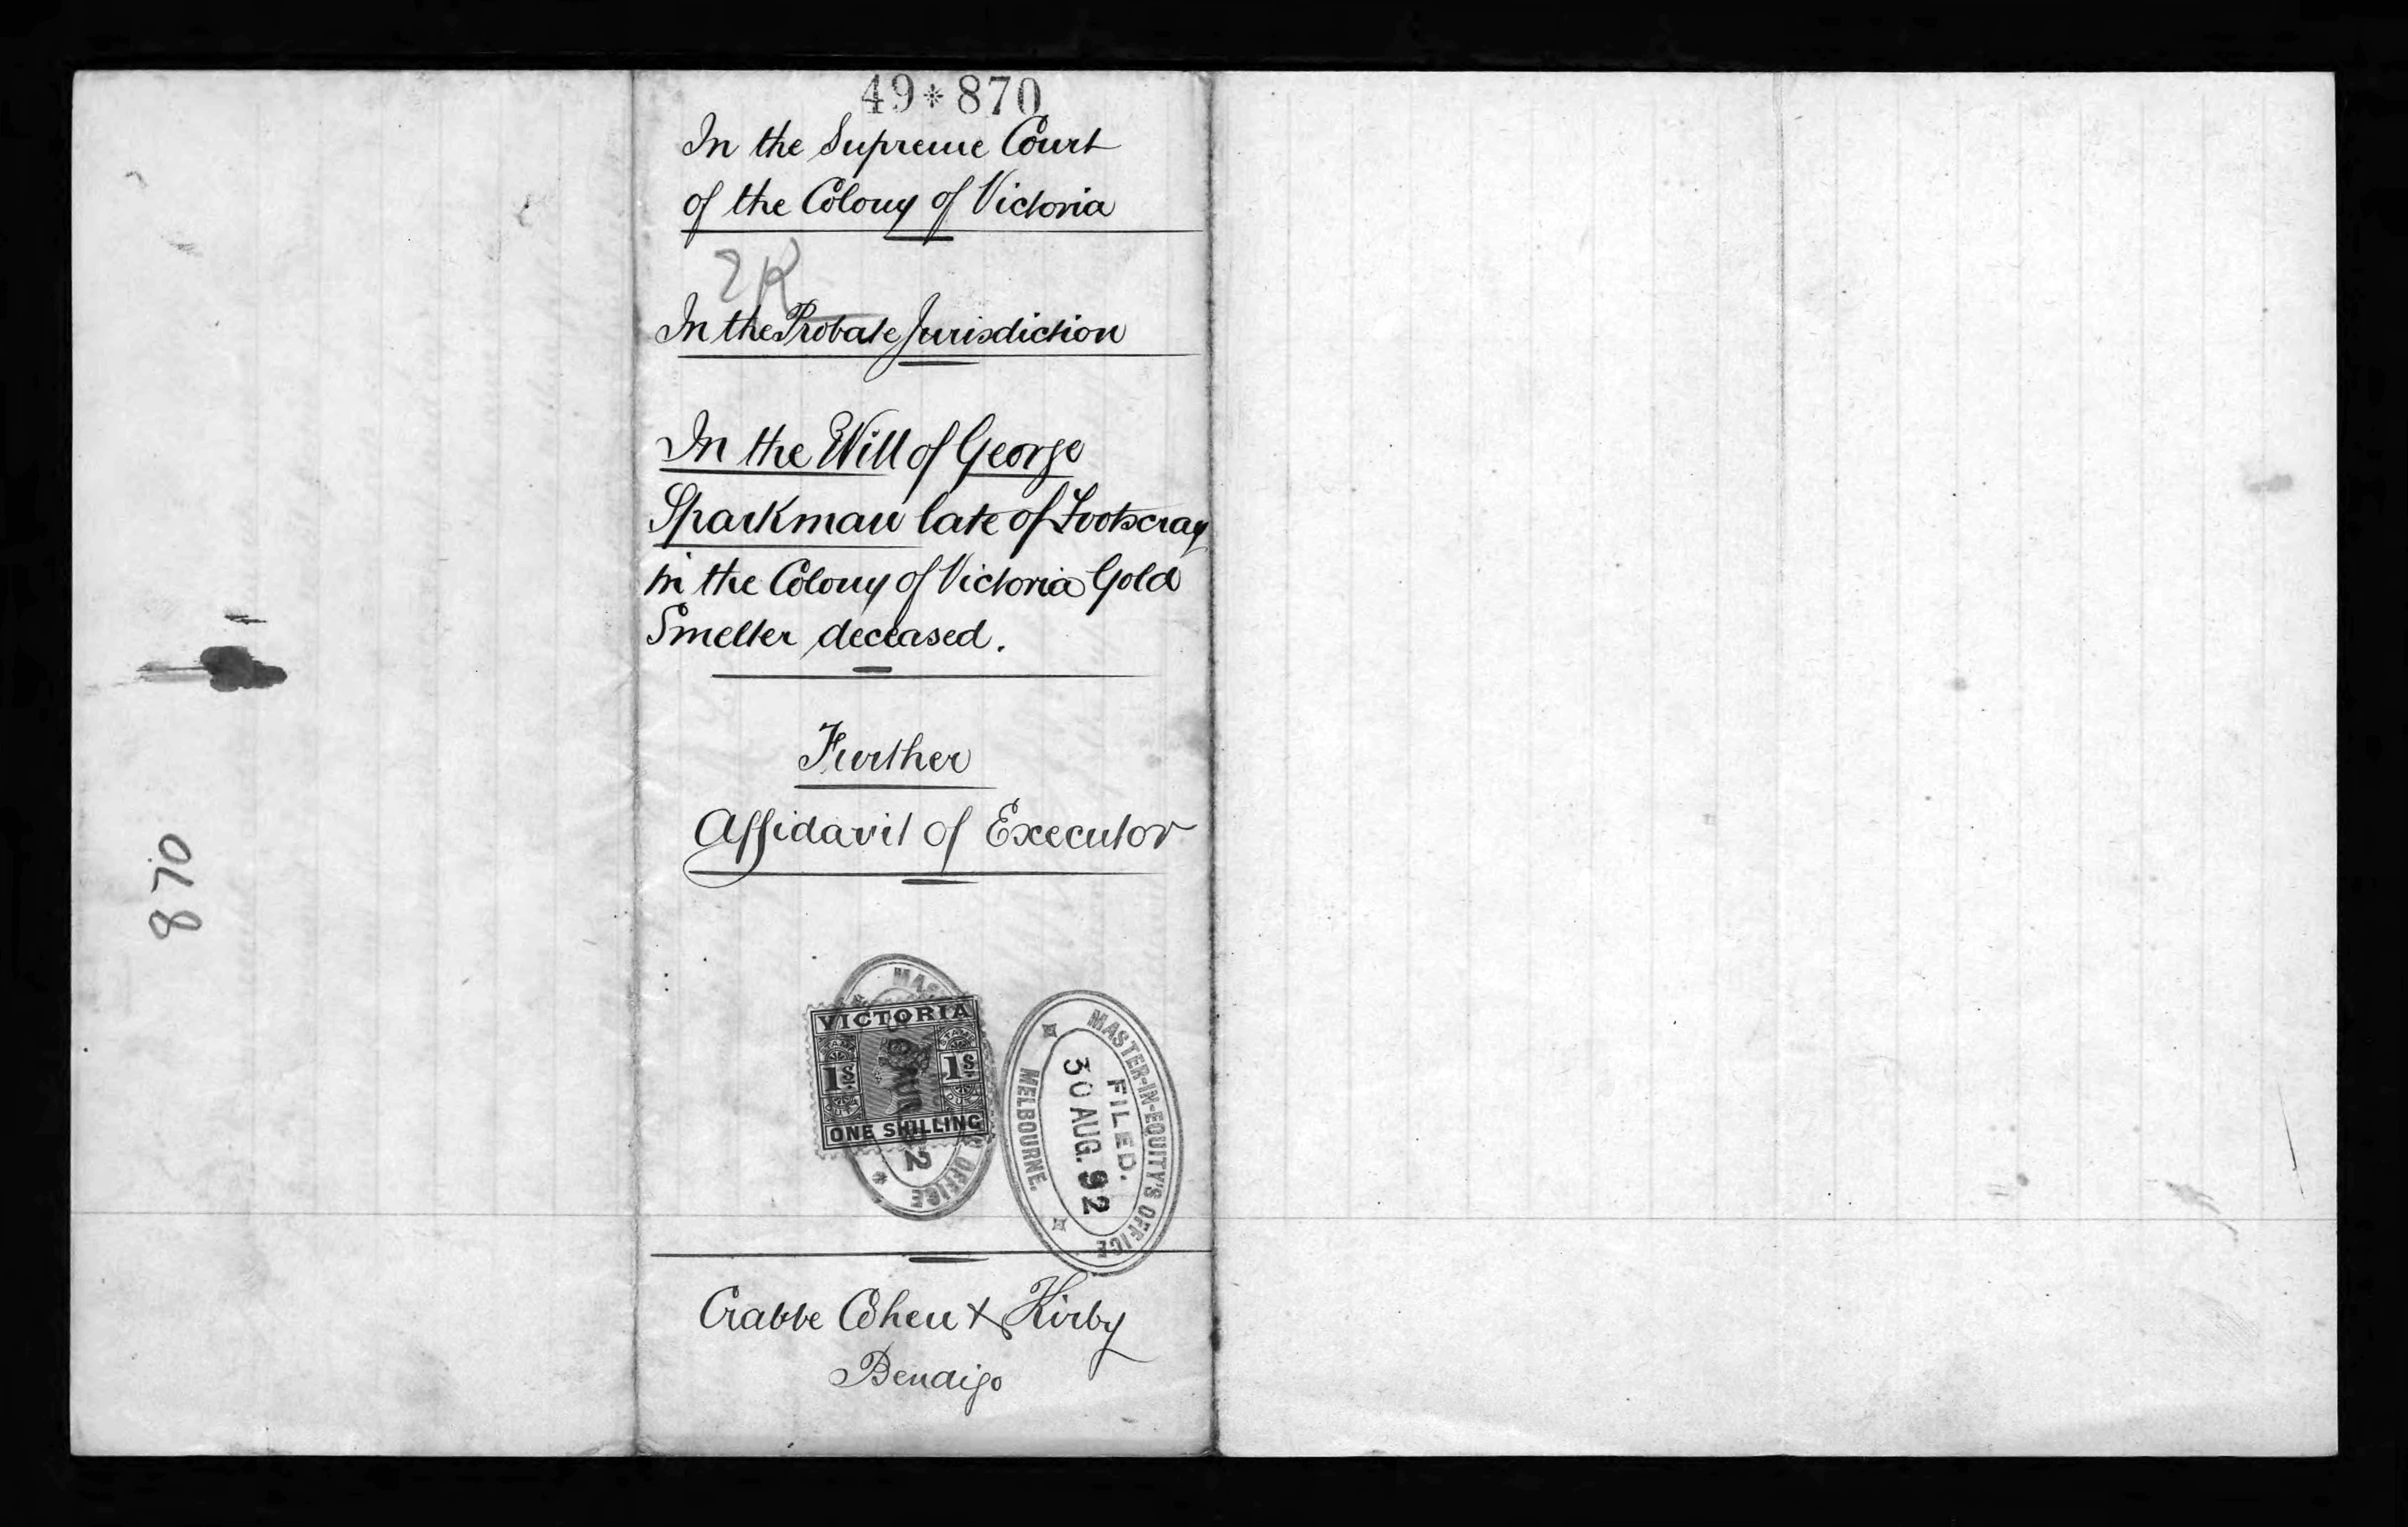 49*870
In the Supreme Court
of the Colony of Victoria
In the Probate Jurisdiction
In the Will of George
Sparkman late of Footscray
in the Colony of Victoria Gold
Smelter deceased.
Further
Affidavit of Executor
VICTORIA
1S. 1S.
ONE SHILLING
OFFICE
MASTER-IN-EQUITY'S OFFICE
FILED.
30 AUG. 92
MELBOURNE.
Crabbe Cohen & Kirby
Bendigo
870